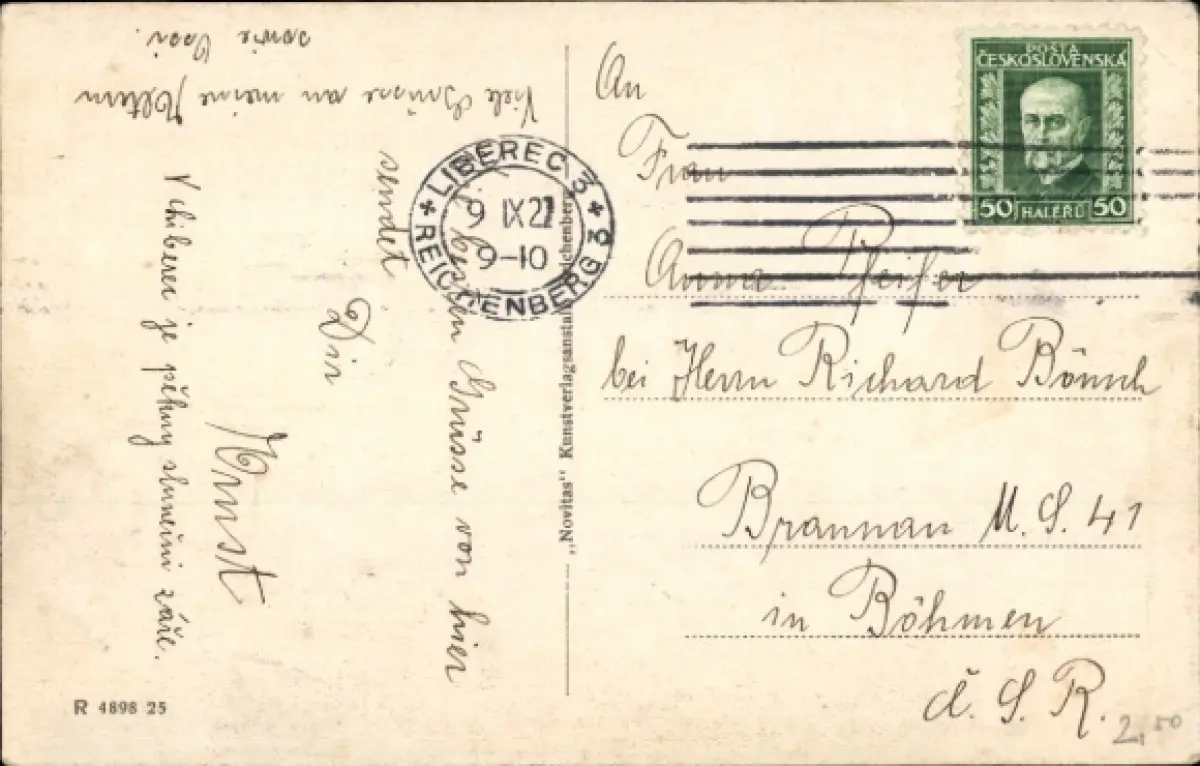 Die besten Grüsse von hier
sendet
Dir
Ernst
V Liberci je pěkný sluneční záře.
Viele Grüsse an meine Eltern
sowie
An
Frau
Anna Pfeifer
bei Herrn Richard Bönsch
Braunau U. S. 41
in Böhmen
č. S. R.
2,50
POŠTA
ČESKOSLOVENSKÁ
50 HALÉŘŮ 50
LIBEREC 3
9 IX 27
9-10
REICHENBERG 3
„Novitas" Kunstverlagsanstalt Reichenberg
R 4898 25